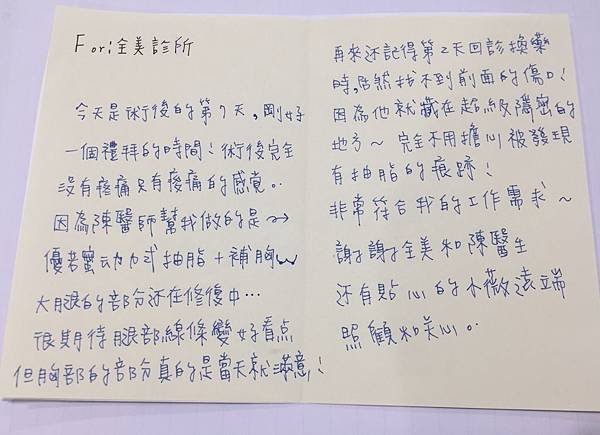 For:全美診所
今天是術後的第7天,剛好
一個禮拜的時間!術後完全
沒有疼痛只有痠痛的感覺。
因為陳醫師幫我做的是→
優若蜜动力式抽脂+補胸
大腿的部分还在修復中…
很期待腿部線條變好看点
但胸部的部分真的是當天就滿意!
再來还記得第2天回診換藥
時,居然找不到前面的傷口!
因為他就藏在超級隱密的
地方~完全不用擔心被發現
有抽脂的痕跡!
非常符合我的工作需求~
謝謝全美和陳醫生
还有貼心的小薇遠端
照顧和关心。